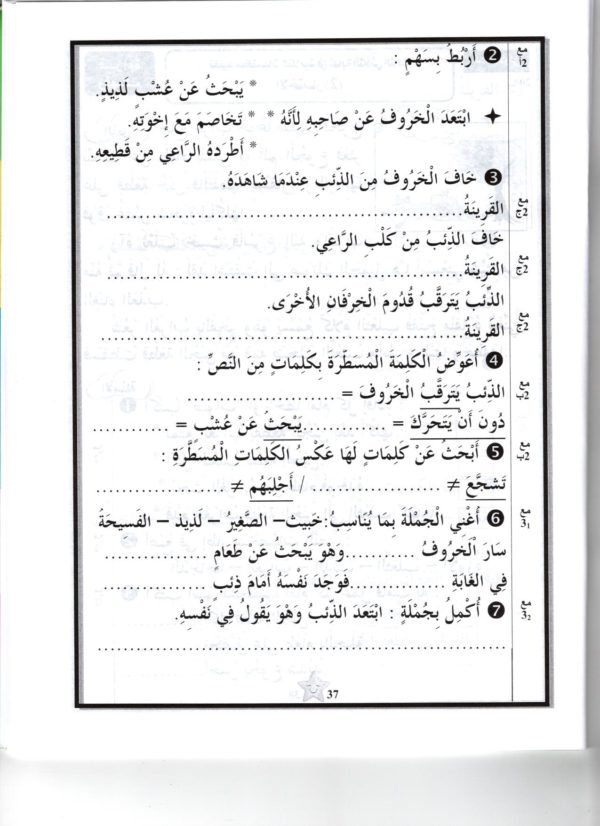 ❷ أَرْبُطُ بِسَهْمٍ :
* يَبْحَثُ عَنْ عُشْبٍ لَذِيذٍ.
✦ ابْتَعَدَ الْخَرُوفُ عَنْ صَاحِبِهِ لِأَنَّهُ * * تَخَاصَمَ مَعَ إِخْوَتِهِ.
* أَطْرَدَهُ الرَّاعِي مِنْ قَطِيعِهِ.
❸ خَافَ الْخَرُوفُ مِنَ الذِّئْبِ عِنْدَمَا شَاهَدَهُ.
القَرِينَةُ....................................
خَافَ الذِّئْبُ مِنْ كَلْبِ الرَّاعِي.
القَرِينَةُ....................................
الذِّئْبُ يَتَرَقَّبُ قُدُومَ الْخِرْفَانِ الأُخْرَى.
القَرِينَةُ....................................
❹ أُعَوِّضُ الْكَلِمَةَ الْمُسَطَّرَةَ بِكَلِمَاتٍ مِنَ النَّصِّ :
الذِّئْبُ يَتَرَقَّبُ الْخَرُوفَ = ....................
دُونَ أَنْ يَتَحَرَّكَ = .............يَبْحَثُ عَنْ عُشْبٍ = ............
❺ أَبْحَثُ عَنْ كَلِمَاتٍ لَهَا عَكْسُ الكَلِمَاتِ الْمُسَطَّرَةِ :
تَشَجَّعَ ≠ .................. / أَجْلِبَهُمْ ≠ ..................
❻ أُغْنِي الْجُمْلَةَ بِمَا يُنَاسِبُ: خَبِيث– الصَّغِيرُ – لَذِيذَ – الفَسِيحَةُ
سَارَ الْخَرُوفُ ...........وَهْوَ يَبْحَثُ عَنْ طَعَامٍ ............
فِي الغَابَةِ ...............فَوَجَدَ نَفْسَهُ أَمَامَ ذِئْبٍ ............
❼ أُكْمِلُ بِجُمْلَةٍ : ابْتَعَدَ الذِّئْبُ وَهْوَ يَقُولُ فِي نَفْسِهِ.
..............................................................
37